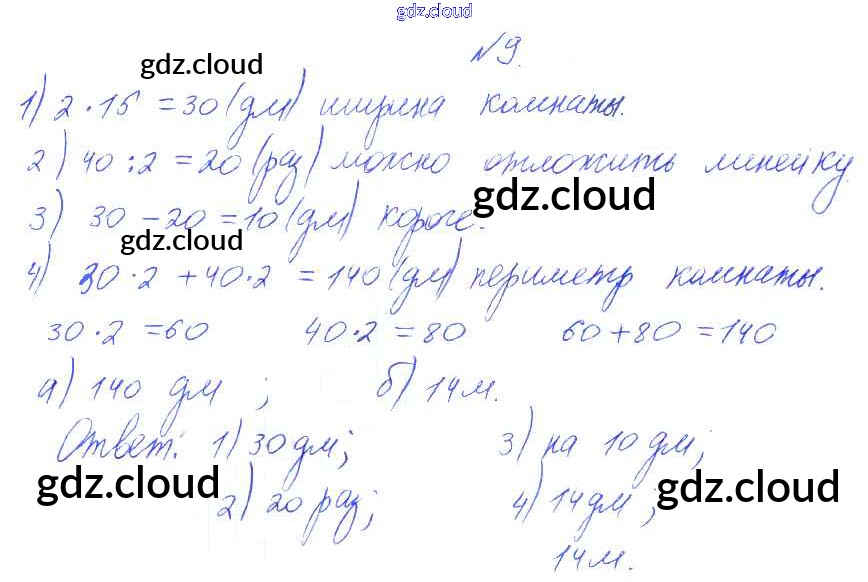 gdz.cloud
№9.
gdz.cloud
1) 2 · 15 = 30 (дм) ширина комнаты.
2) 40 : 2 = 20 (раз) можно отложить линейку.
gdz.cloud
3) 30 - 20 = 10 (дм) короче.
gdz.cloud
4) 30 · 2 + 40 · 2 = 140 (дм) периметр комнаты.
30 · 2 = 60 40 · 2 = 80 60 + 80 = 140
а) 140 дм ; б) 14 м.
Ответ: 1) 30 дм; 3) на 10 дм;
gdz.cloud gdz.cloud
2) 20 раз; 4) 14 дм ;
14 м.